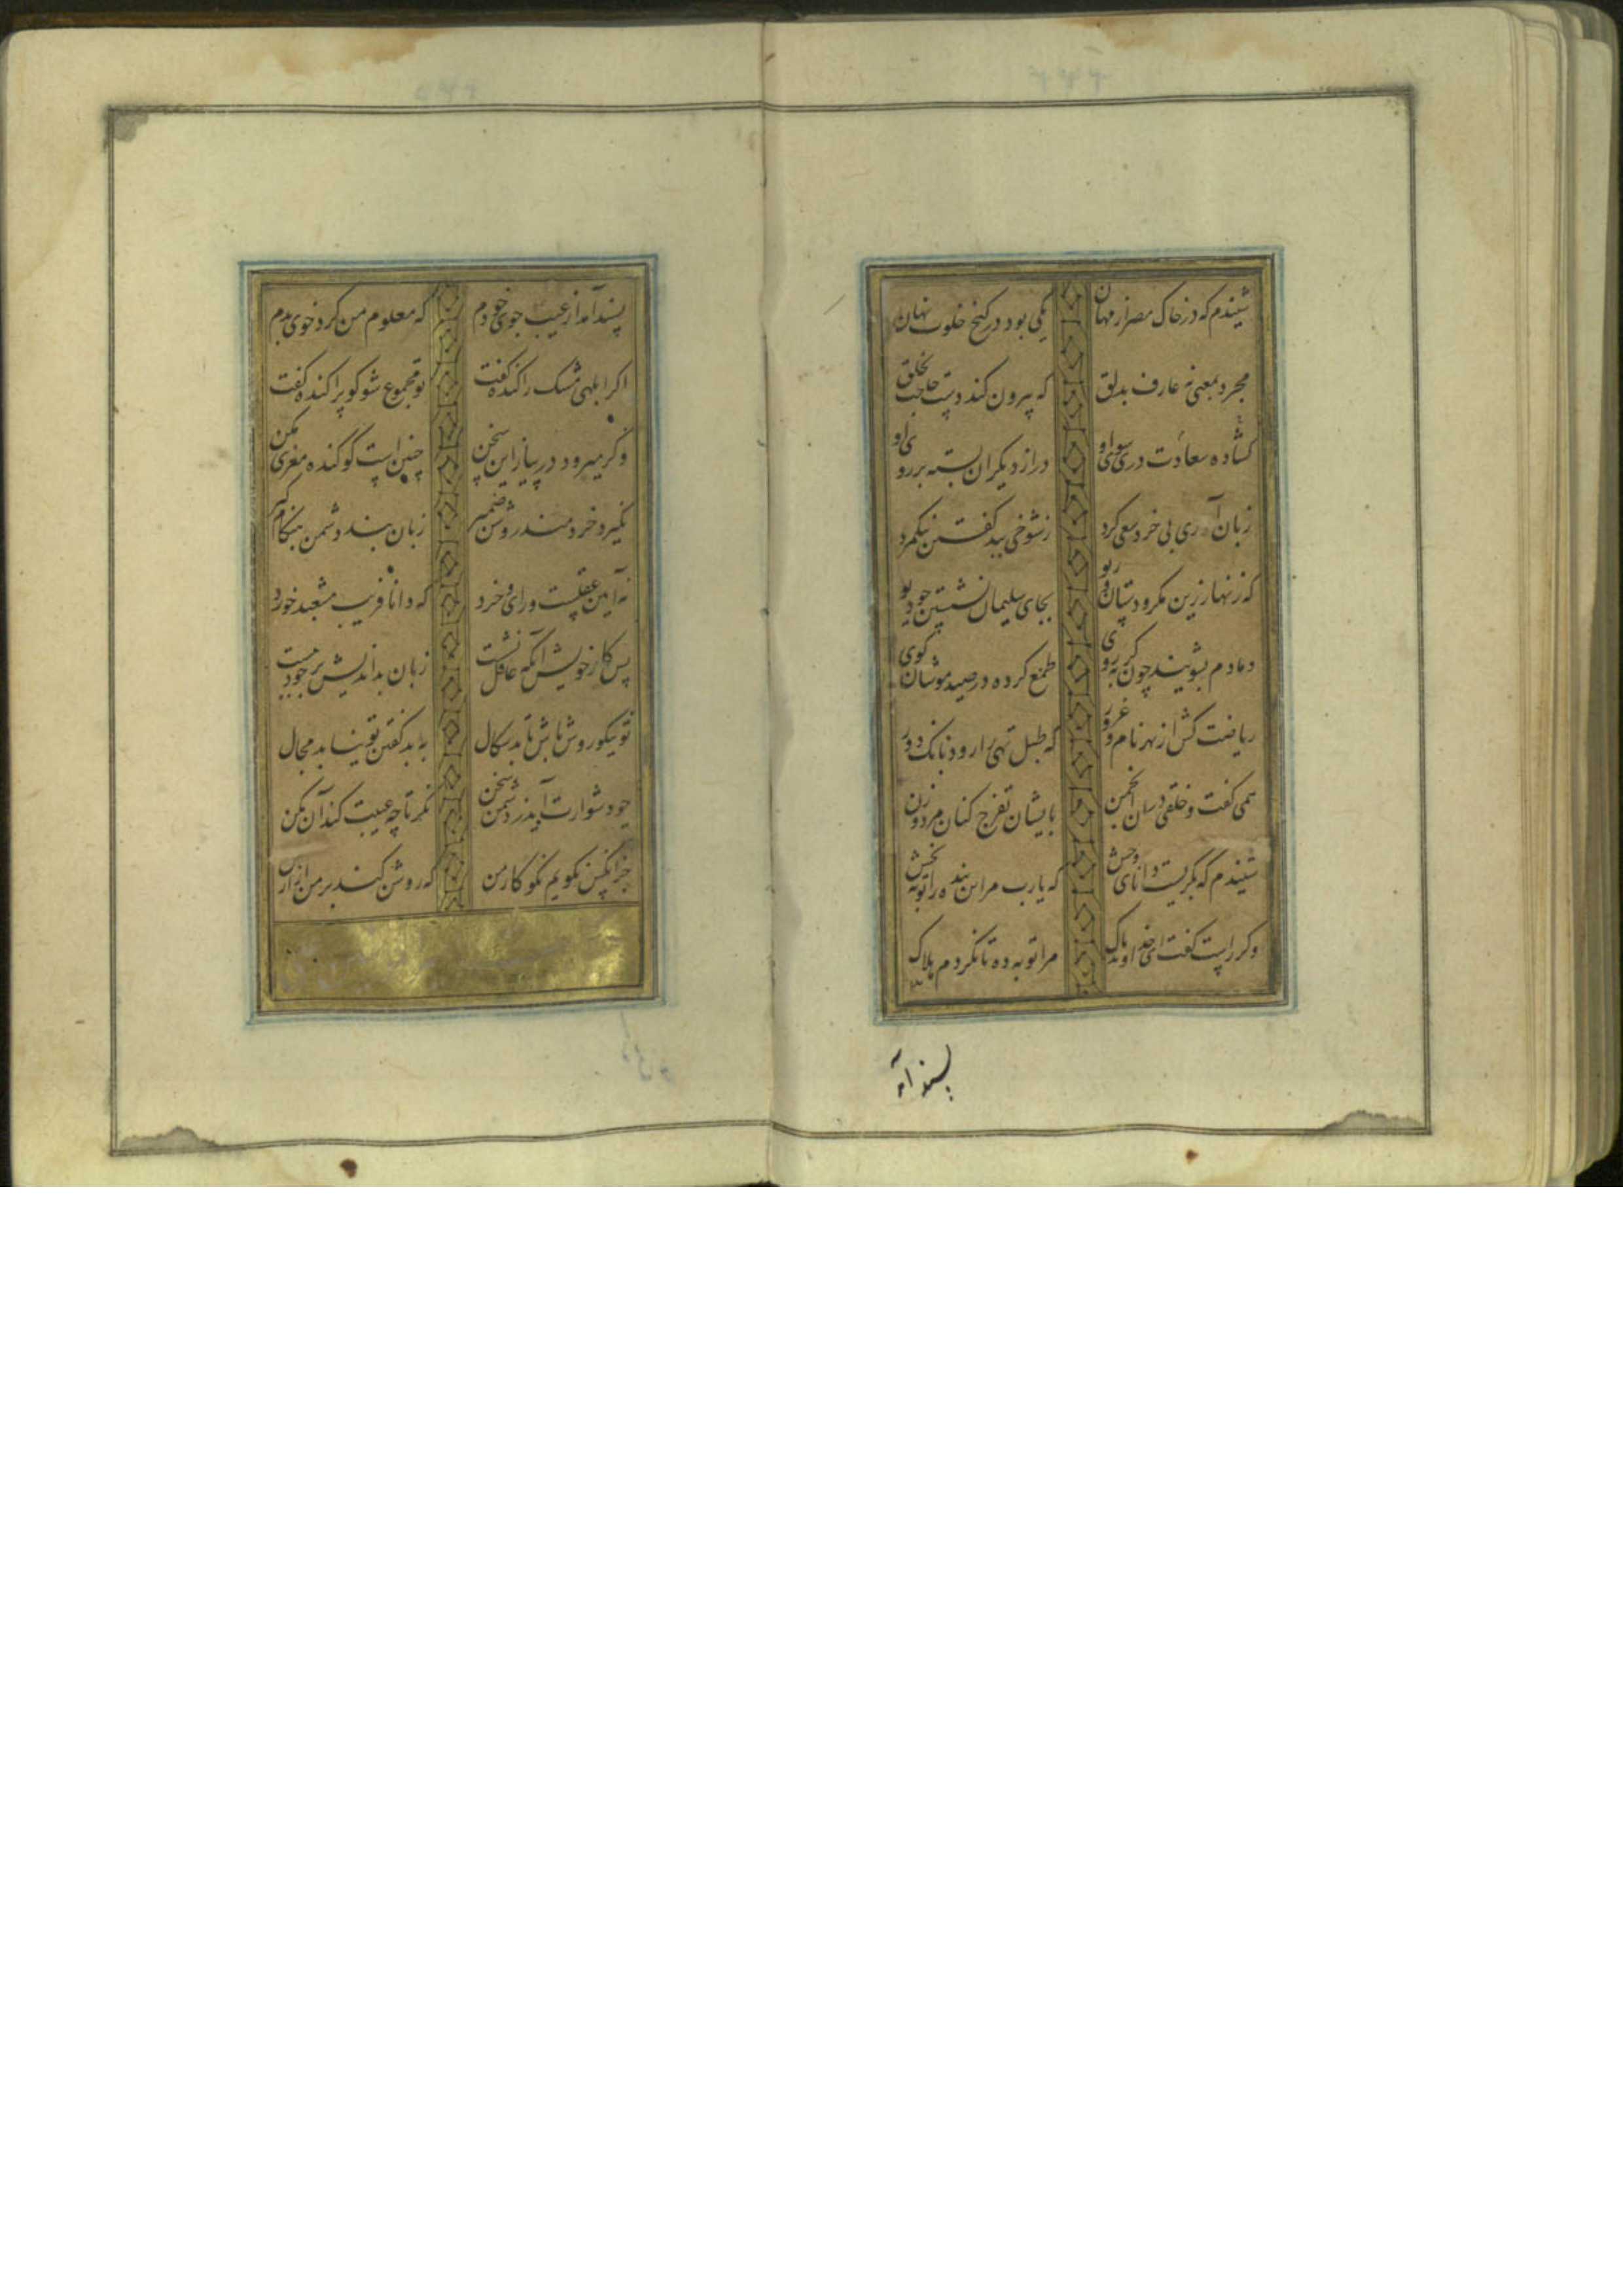 شنیدم که در خاک مصر از مهان یکی بود در کنج خلوت نهان
مجرد بمعنی نه عارف بدلق که بیرون کند دست حاجت بخلق
کشاده سعادت دری سوی او در از دیکران بسته بر روی او
زبان آوری بی خرد سعی کرد ز شوخی ببد کفتن نیکمرد
که زنهار ازین مکر و دستان و ریو بجای سلیمان نشستن چو دیو
دمادم بشویند چون کربه روی طمع کرده در صید موشان کوی
ریاضت کش از بهر نام و غرور که طبل تهی را رود بانک دور
همی کفت و خلقی انجمن بایشان تفرج کنان مرد و زن
شنیدم که بکریست دانای وخش که یارب مر این بنده را توبه بخش
وکر راست کفت ای خداوند پاک مرا توبه ده تا نکردم هلاک
پسند آمد
پسند آمد از عیب جوی خودم که معلوم من کرد خوی بدم
اکر ابلهی مشک را کنده کفت تو مجموع شو کو پراکنده کفت
وکر میرود در پیاز این سخن چنین است کو کنده مغزی مکن
نکیرد خردمند روشن ضمیر زبان بند دشمن بهنکامه کیر
نه آیین عقلست و رای و خرد که دانا فریب مشعبد خورد
پس کار خویش آنکه عاقل نشست زبان بداندیش بر خود ببست
تو نیکو روش باش تا بدسکال به بد کفتن تو نیابد مجال
چو دشوارت آید ز دشمن سخن نکر تا چه عیبت کند آن مکن
جز آنکس نکویم نکو کار من که روشن کند بر من آزار من